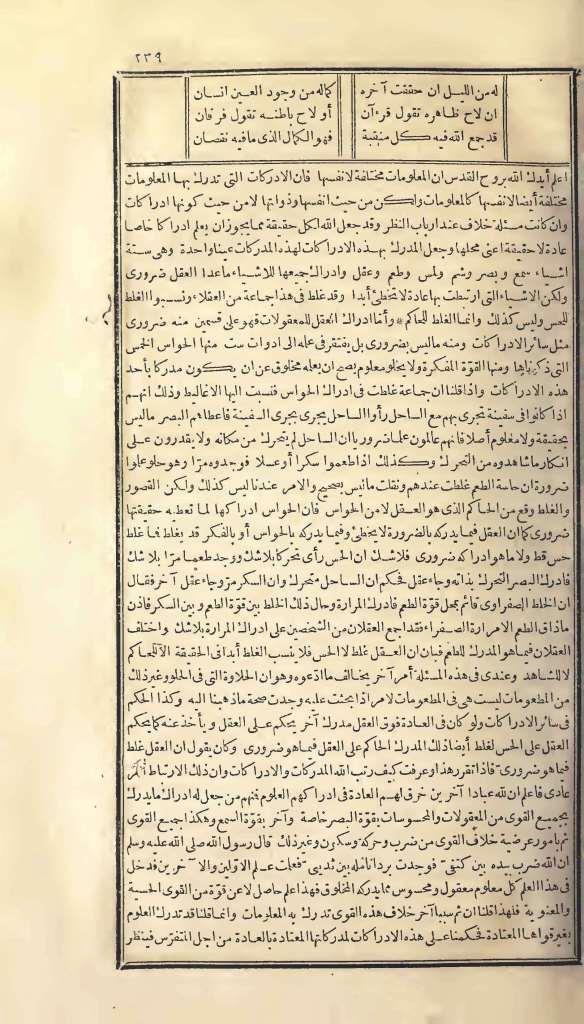 ٢٣٩
له من الليل ان حققت آخره كماله من وجود العين انسان
ان لاح ظاهره تقول قرءآن أو لاح باطنه تقول فرقان
قد جمع الله فيه كل منقبة فهو الكمال الذى مافيه نقصان
اعلم أيدك الله بروح القدس ان المعلومات مختلفة لانفسها فان الادركات التى تدرك بها المعلومات
مختلفة أيضا لانفسها كالمعلومات ولكن من حيث انفسها وذواتها لامن حيث كونها ادراكات
وان كانت مسئلة خلاف عند ارباب النظر وقد جعل الله لكل حقيقة مما يجوز ان يعلم ادرا كا خاصا
عادة لاحقيقة اعنى محلها وجعل المدرك بهذه الادراكات لهذه المدركات عينا واحدة وهى ستة
اشياء سمع وبصر وشم ولمس وطعم وعقل وادراك جميعها للاشياء ماعدا العقل ضرورى
ولكن الاشياء التى ارتبطت بها عادة لا تخطئ أبدا وقد غلط فى هذا جماعة من العقلاء ونسبوا الغلط
للحس وليس كذلك وانما الغلط للحاكم * وأما ادراك العقل للمعقولات فهو على قسمين منه ضرورى
مثل سائر الادراكات ومنه ماليس بضرورى بل يفتقر فى علمه الى ادوات ست منها الحواس الخمس
التى ذكرناها ومنها القوّة المفكرة ولا يخلو معلوم يصح ان يعلمه مخلوق عن ان يكون مدركا بأحد
هذه الادراكات واذا قلنا ان جماعة غلطت فى ادراك الحواس فنسبت اليها الاغاليط وذلك انهم
اذا كانوا فى سفينة تجرى بهم مع الساحل رأوا الساحل يجرى بجرى السفينة فاعطاهم البصر ماليس
بحقيقة ولا معلوم أصلا فانهم عالمون علما ضروريا ان الساحل لم يتحرك من مكانه ولا يقدرون على
انكار ماشاهدوه من التحرك وكذلك اذا طعموا سكرا أو عسلا فوجدوه مرّا وهو حلو علموا
ضرورة ان حاسة الطعم غلطت عندهم ونقلت ماليس بصحيح والامر عندنا ليس كذلك ولكن القصور
والغلط وقع من الحاكم الذى هو العقل لامن الحواس فان الحواس ادراكها لما تعطيه حقيقتها
ضرورى كما ان العقل فيما يدركه بالضرورة لا يخطئ وفيما يدركه بالحواس أو بالفكر قد يغلط فما غلط
حس قط ولا ماهو ادراكه ضرورى فلاشك ان الحس رأى تحركا بلاشك ووجد طعما مرّا بلاشك
فادرك البصر التحرك بذاته وجاء عقل فحكم ان الساحل متحرك وان السكر مرّ وجاء عقل آخر فقال
ان الخلط الصفراوى قائم بمحل قوّة الطعم فادرك المرارة وحال ذلك الخلط بين قوّة الطعم وبين السكر فاذن
ماذاق الطعم الامرارة الصفراء فقد اجمع العقلان من الشخصين على ادراك المرارة بلاشك واختلف
العقلان فيما هو المدرك للطعم فبان ان العقل غلط لا الحس فلا ينسب الغلط أبدا فى الحقيقة الا للحاكم
لا للشاهد وعندى فى هذه المسئلة أمر آخر يخالف ما ادّعوه وهو ان الحلاوة التى فى الحلو وغير ذلك
من المطعومات ليست هى فى المطعومات لامر اذا بحثت عليه وجدت صحة ماذهبنا اليه وكذا الحكم
فى سائر الادراكات ولو كان فى العادة فوق العقل مدرك آخر يحكم على العقل ويأخذ عنه كما يحكم
العقل على الحس لغلط أيضا ذلك المدرك الحاكم على العقل فيما هو ضرورى وكان يقول ان العقل غلط
فيما هو ضرورى فاذا تقرر هذا وعرفت كيف رتب الله المدركات والادراكات وان ذلك الارتباط أمر
عادى فاعلم ان لله عبادا آخرين خرق لهم العادة فى ادراكهم العلوم فمنهم من جعل له ادراك ما يدرك
بجميع القوى من المعقولات والمحسوسات بقوّة البصر خاصة وآخر بقوّة السمع وهكذا جميع القوى
ثم بأمور عرضية خلاف القوى من ضرب وحركة وسكون وغير ذلك قال رسول الله صلى الله عليه وسلم
ان الله ضرب بيده بين كتفىّ فوجدت برد انامله بين ثدييّ فعلمت علم الاوّلين والآخرين فدخل
فى هذا العلم كل معلوم معقول ومحسوس مما يدركه المخلوق فهذا علم حاصل لاعن قوّة من القوى الحسية
والمعنوية فلهذا قلنا ان ثم سببا آخر خلاف هذه القوى تدرك به المعلومات وانما قلنا قد تدرك العلوم
بغير قواها المعتادة فحكمنا على هذه الادراكات لمدركاتها المعتادة بالعادة من اجل المتفرّس فينظر